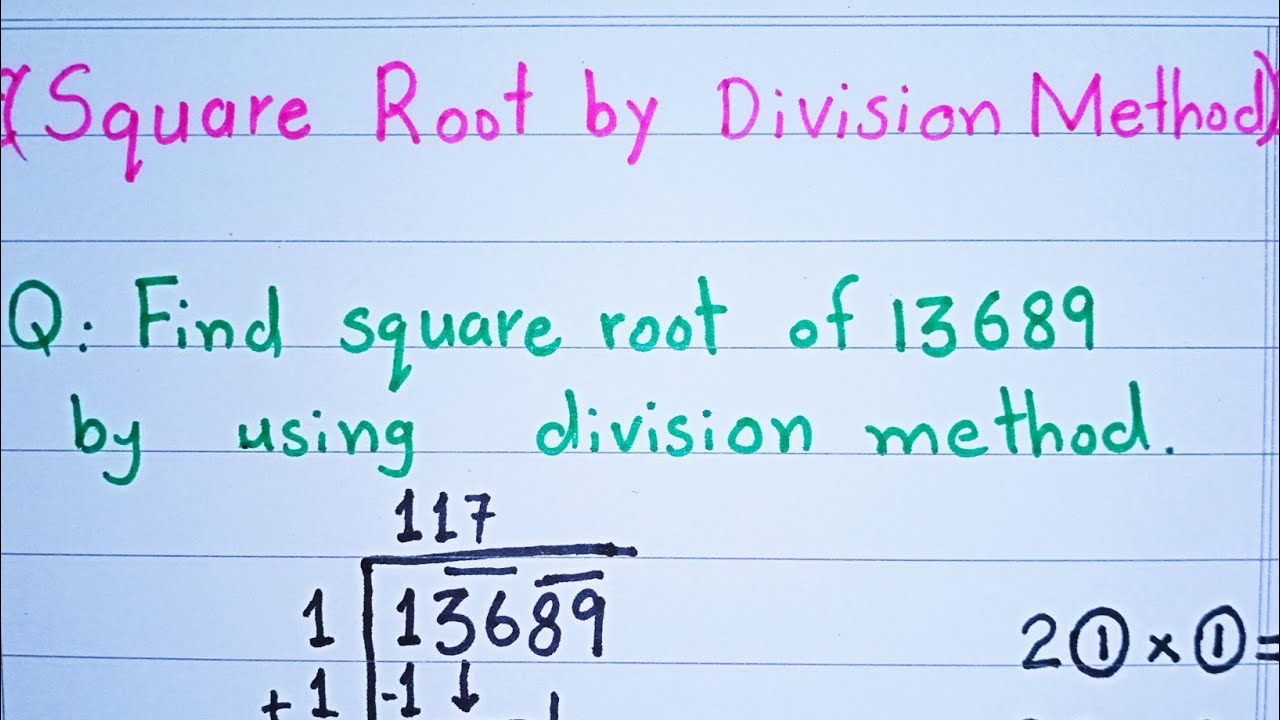 (Square Root by Division Method)
Q: Find square root of 13689
by using division method.
117
1 13689
2①×①=
+1 -1 ↓